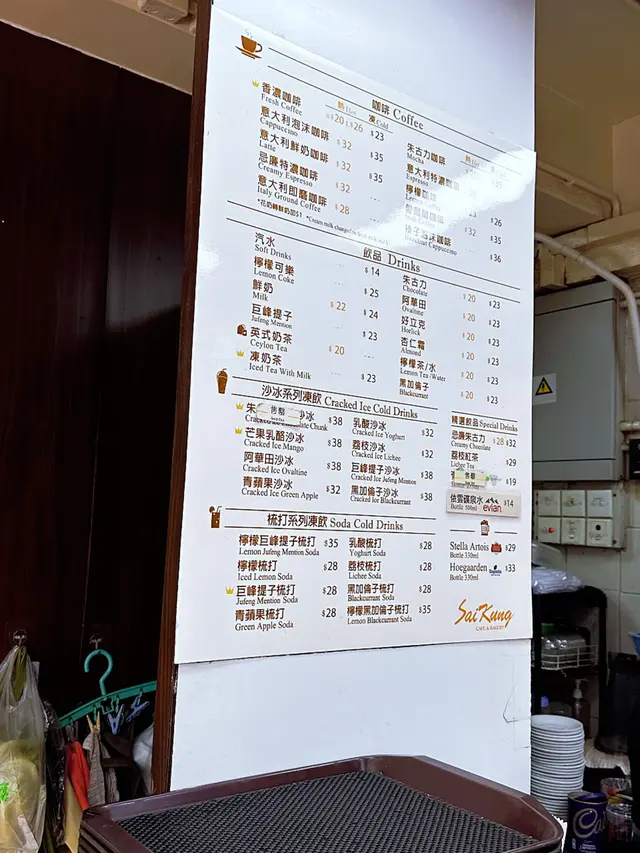 咖啡 Coffee
熱 Hot 凍 Cold
香濃咖啡 $20 | $26 $23
Fresh Coffee
意大利泡沫咖啡 $32 $35
Cappuccino
意大利鮮奶咖啡 $32 $35
Latte
忌廉特濃咖啡 $32 ---
Creamy Espresso
意大利即磨咖啡 $28 ---
Italy Ground Coffee
*花奶轉鮮奶加$1
朱古力咖啡
Mocha
意大利特濃咖啡
Espresso
檸檬咖啡 $26
榛子泡沫咖啡 $32 $35
Hazelnut Cappuccino $36
飲品 Drinks
汽水 --- $14
Soft Drinks
檸檬可樂 --- $25
Lemon Coke
鮮奶 $22 $24
Milk
巨峰提子 --- $23
Jufeng Mention
英式奶茶 $20 ---
Ceylon Tea
凍奶茶 --- $23
Iced Tea With Milk
朱古力 $20 $23
Chocolate
阿華田 $20 $23
Ovaltine
好立克 $20 $23
Horlick
杏仁霜 $20 $23
Almond
檸檬茶/水 $20 $23
Lemon Tea /Water
黑加倫子 $20 $23
Blackcurrant
沙冰系列凍飲 Cracked Ice Cold Drinks
朱 售罄 沙冰 $38
Chunk
芒果乳酪沙冰 $38
Cracked Ice Mango
阿華田沙冰 $38
Cracked Ice Ovaltine
青蘋果沙冰 $32
Cracked Ice Green Apple
乳酸沙冰 $32
Cracked Ice Yoghurt
荔枝沙冰 $32
Cracked Ice Lichee
巨峰提子沙冰 $38
Cracked Ice Jufeng Mention
黑加倫子沙冰 $38
Cracked Ice Blackcurrant
精選飲品 Special Drinks
忌廉朱古力 $28 $32
Creamy Chocolate
荔枝紅茶 $29
Lichee Tea
售罄 $19
依雲礦泉水 evian $14
Bottle 500ml
梳打系列凍飲 Soda Cold Drinks
檸檬巨峰提子梳打 $35
Lemon Jufeng Mention Soda
檸檬梳打 $28
Iced Lemon Soda
巨峰提子梳打 $28
Jufeng Mention Soda
青蘋果梳打 $28
Green Apple Soda
乳酸梳打 $28
Yoghurt Soda
荔枝梳打 $28
Lichee Soda
黑加倫子梳打 $28
Blackcurrant Soda
檸檬黑加倫子梳打 $35
Lemon Blackcurrant Soda
Stella Artois $29
Bottle 330ml
Hoegaarden $33
Bottle 330ml
Sai Kung
CAFE & BAKERY